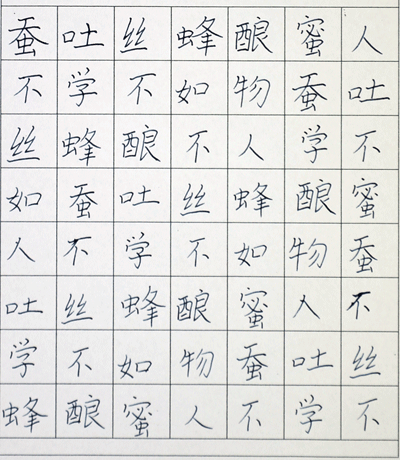 蚕吐丝蜂酿蜜人
不学不如物蚕吐
丝蜂酿不人学不
如蚕吐丝蜂酿蜜
人不学不如物蚕
吐丝蜂酿蜜人不
学不如物蚕吐丝
蜂酿蜜人不学不